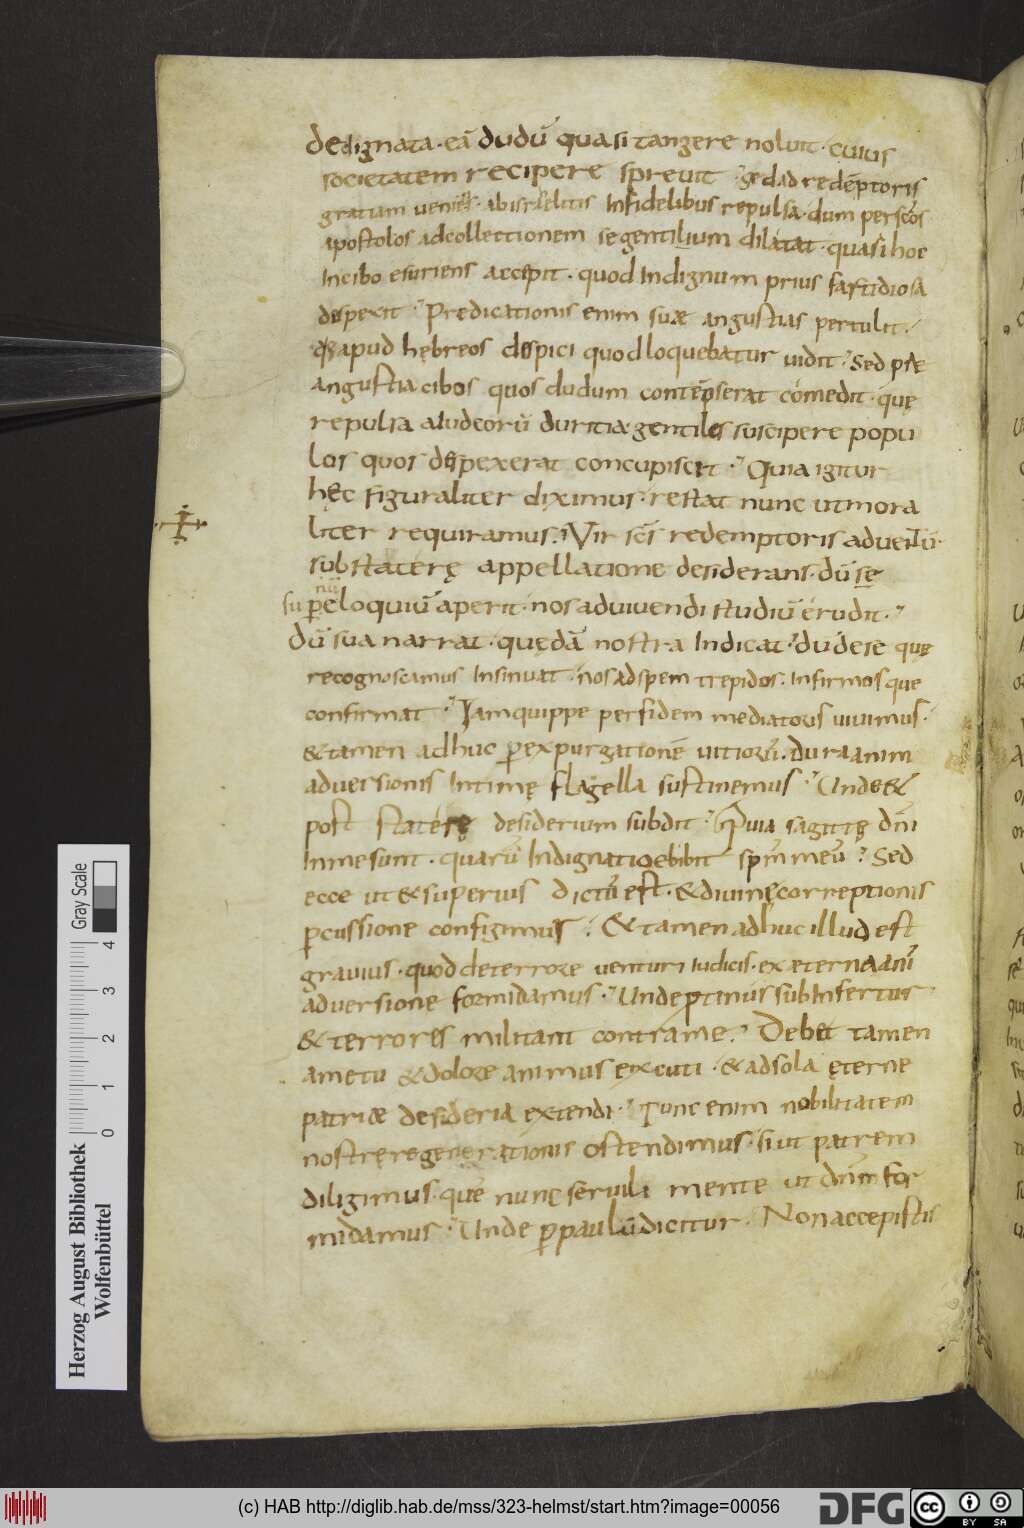 dedignata· eā dudū quasi tangere noluit· cuius
societatem recipere spreuit· sed ad redēptoris
gratum ueniēs· ab israhelitis Infidelibus repulsa· dum per scōs
apostolos ad collectionem se gentilium dilatat· quasi hoc
In cibo esuriens accepit· quod Indignum prius fastidiosa
despexit· Predicationis enim suæ angustias pertulit·
apud hebreos despici quod loquebatur uidit· Sed p̄
angustia cibos quos dudum contēpserat comedit· quę
repulsa a Iudeorū duritia gentiles suscipere popu
los quos despexerat concupiscit· Quia igitur
hęc figuraliter diximus· restat nunc ut mora
liter requiramus· Vir scī redemptoris aduentū·
sub staterę appellatione desiderans· dū se
nū
su p eloquiū aperit· nos ad uiuendi studiū erudit·
dū sua narrat· quędā nostra Indicat· dū de se quę
recognoscamus Insinuat· nos ad spem trepidos· Infirmosque
confirmat· Iam quippe per fidem mediatoris uiuimus·
& tamen adhuc p expurgationē uitiorū· dura anim
aduersionis Intimę flagella sustinemus· Unde &
post staterę desiderium subdit· Quia sagittę dnī
In me sunt· quarū Indignatio ebibit spm̄ meū· Sed
ecce ut & superius dictū est· & diuinę correptionis
pcussione configimur· & tamen adhuc illud est
grauius· quod de terrore uenturi Iudicis· ex æterna ani
aduersione formidamus· Unde ptinus subInfertur
& terrores militant contra me· Debet tamen
a metu & dolore animus excuti· & ad sola ęterne
patriæ desideria extendi· Tunc enim nobilitatem
nostrę regenerationis ostendimus· si ut patrem
diligimus· quē nunc seruili mente ut dn̄m for
midamus· Unde p paulū dicitur· Non accepistis
Herzog August Bibliothek
Wolfenbüttel
0 1 2 3 4
Gray Scale
(c) HAB http://diglib.hab.de/mss/323-helmst/start.htm?image=00056
DFG
cc BY SA